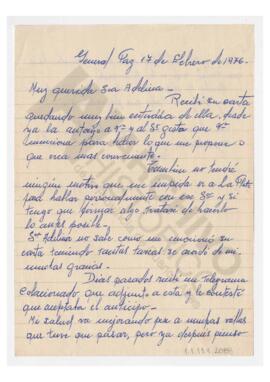 General Paz 17 de Febrero de 1976.
Muy querida Sra Adelina.
Recibí su carta
quedando muy bien enterada de ella, desde
ya la autorizo a Vd y al Sr gestor que Vd
mencione para hablar lo que me propone o
que crea mas conveniente.
También no tendré
ningún motivo que me impida ir a La Plata
para hablar personalmente con ese Sr y si
tengo que firmar algo trataré de hacerlo
lo antes posible.
Sra Adelina no sabe como me emocionó su
carta teniendo tantas tareas se acordó de mi
muchas gracias.
Días pasados recibí un Telegrama
Colacionado que adjunto a esta y le contesté
que aceptaba el anticipo.
Mi salud va mejorando pese a muchas vallas
que tuve que pasar, pero ya después pienso